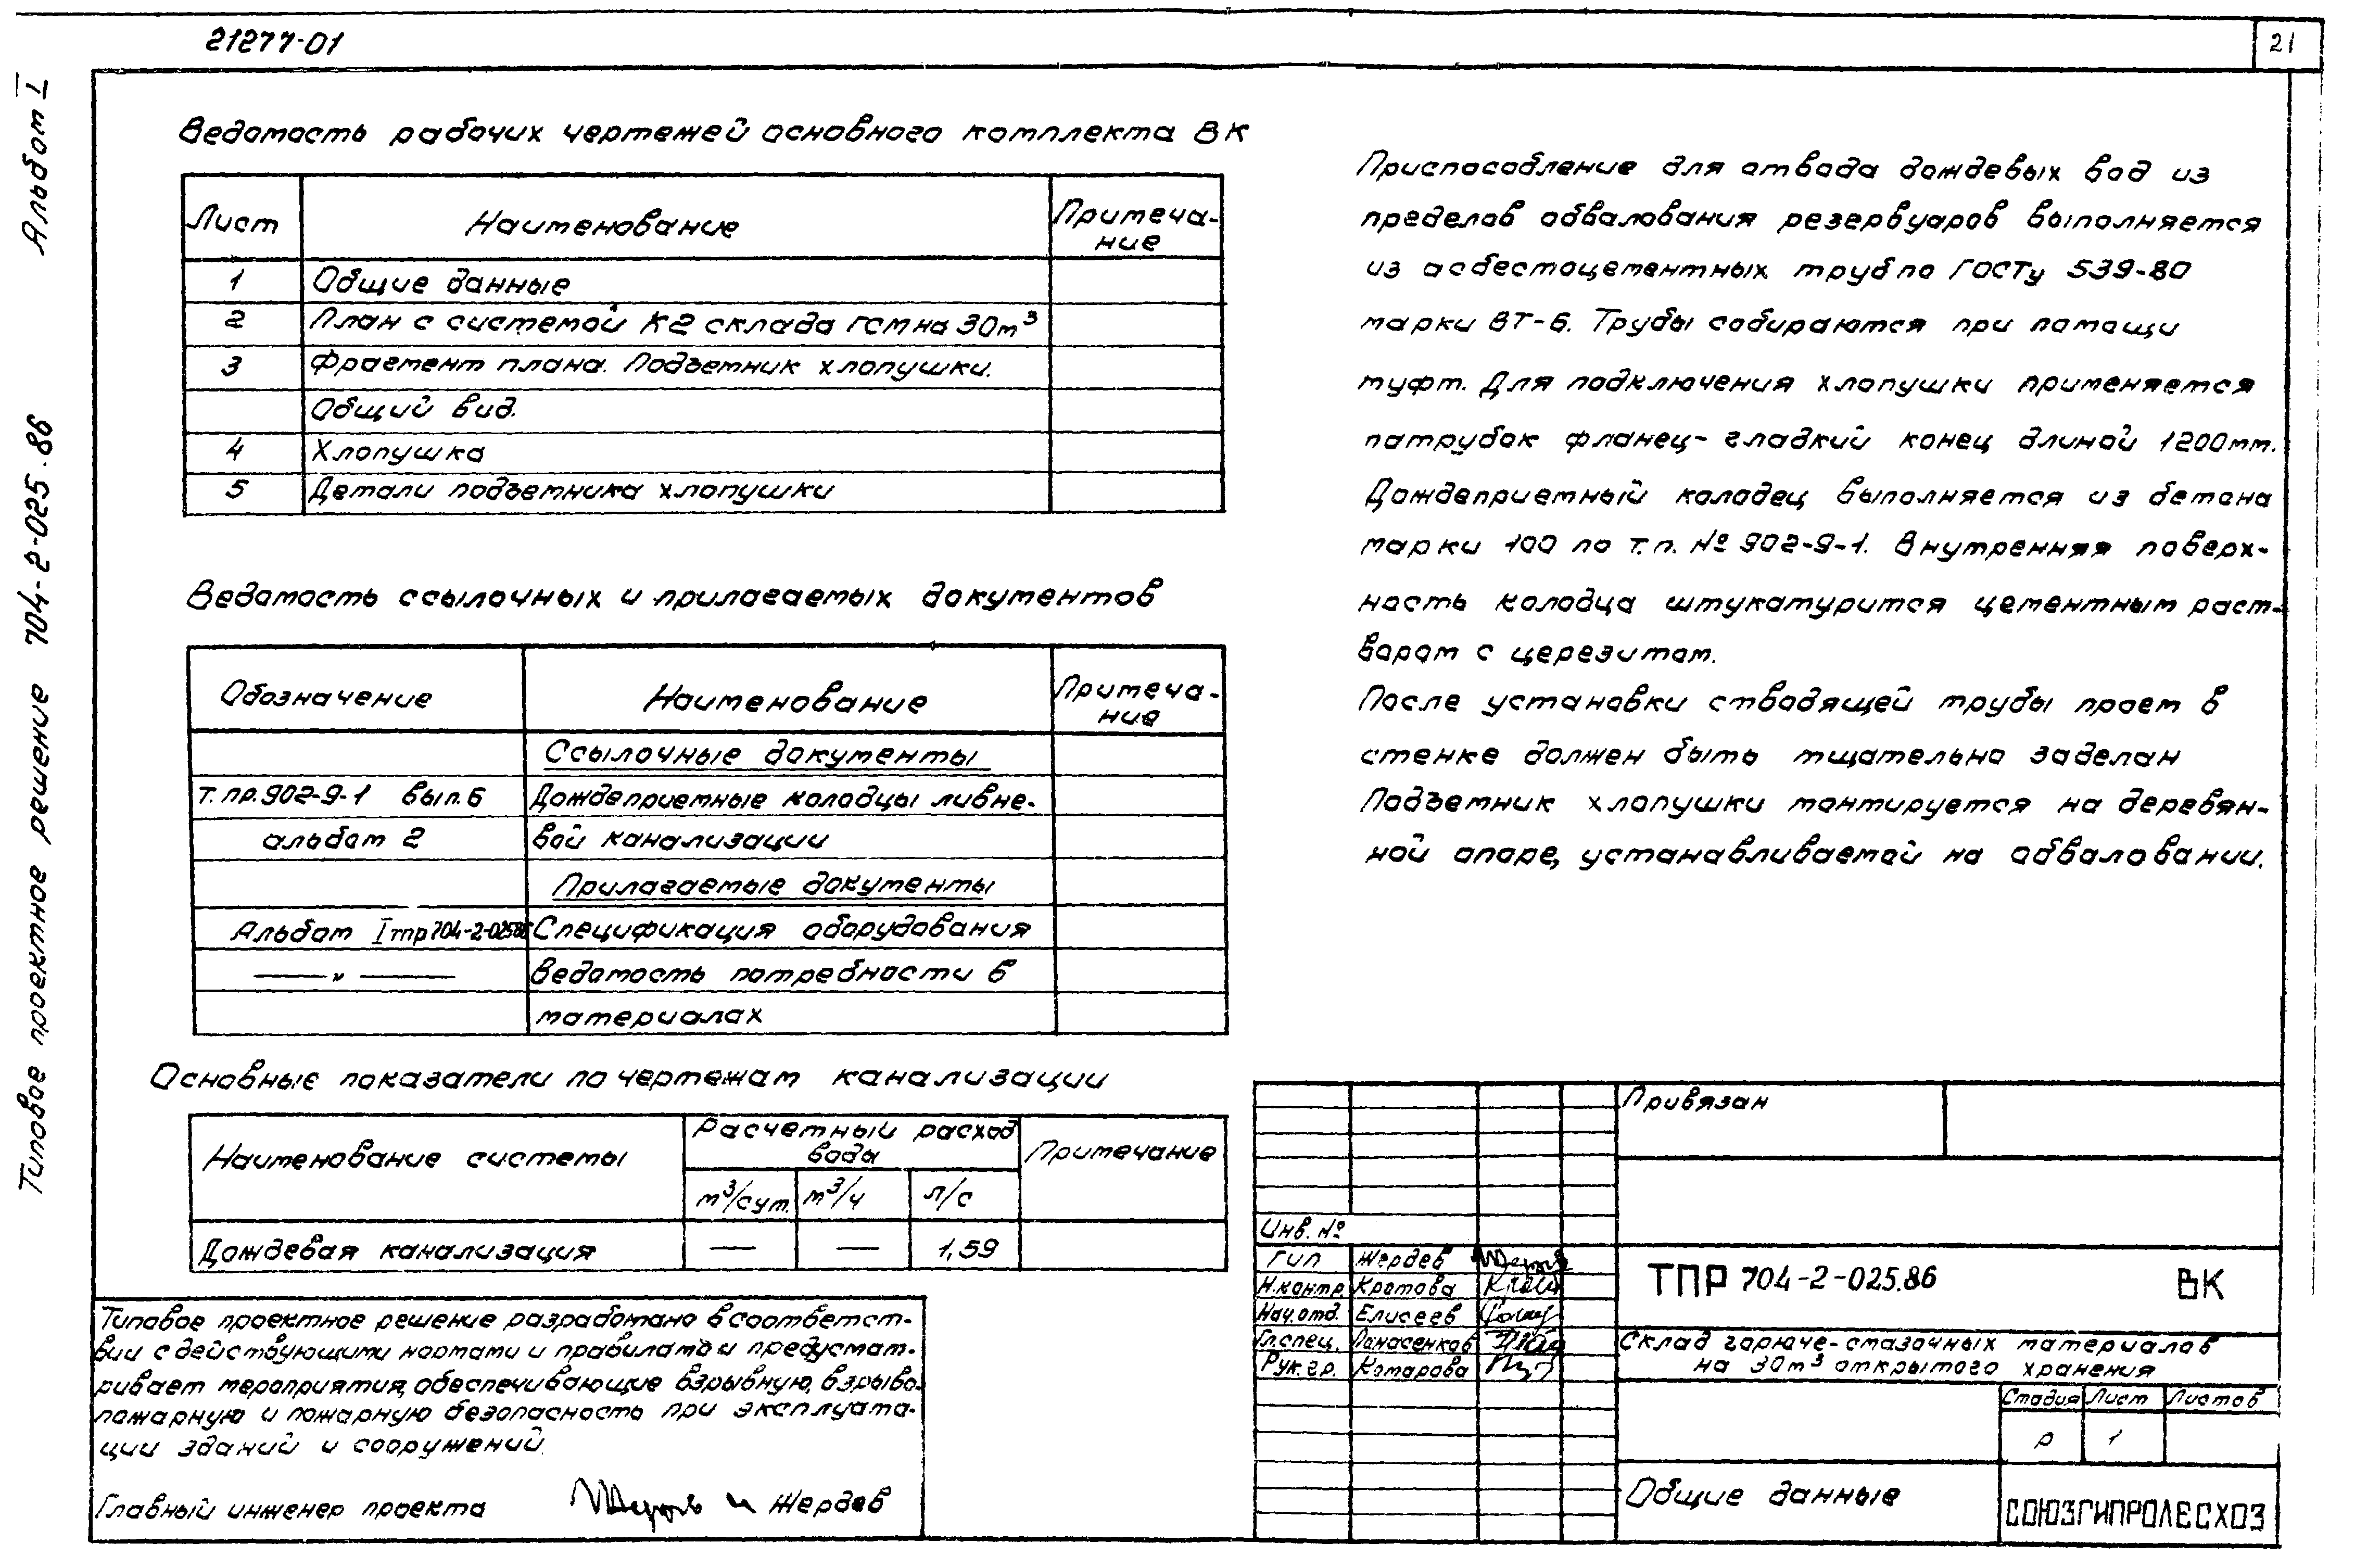 21277-01
21
Альбом I
Типовое проектное решение 704-2-025.86
Ведомость рабочих чертежей основного комплекта ВК
Лист
Наименование
Примеча-
ние
1 Общие данные
2 План с системой К2 склада ГСМ на 30м³
3 Фрагмент плана. Подъемник хлопушки.
Общий вид.
4 Хлопушка
5 Детали подъемника хлопушки
Ведомость ссылочных и прилагаемых документов
Обозначение
Наименование
Примеча-
ние
Ссылочные документы
т.пр.902-9-1 вып.6 Дождеприемные колодцы ливне-
альбом 2 вой канализации
Прилагаемые документы
Альбом I тпр 704-2-025.86 Спецификация оборудования
— " — Ведомость потребности в
материалах
Основные показатели по чертежам канализации
Наименование системы
Расчетный расход
воды
Примечание
м³/сут. м³/ч л/с
Дождевая канализация — — 1,59
Типовое проектное решение разработано в соответст-
вии с действующими нормами и правилами и предусмат-
ривает мероприятия, обеспечивающие взрывную, взрыво-
пожарную и пожарную безопасность при эксплуата-
ции зданий и сооружений.
Главный инженер проекта Жердев
Приспособление для отвода дождевых вод из
пределов обвалования резервуаров выполняется
из асбестоцементных труб по ГОСТу 539-80
марки ВТ-6. Трубы собираются при помощи
муфт. Для подключения хлопушки применяется
патрубок фланец- гладкий конец длиной 1200мм.
Дождеприемный колодец выполняется из бетона
марки 100 по т.п. № 902-9-1. Внутренняя поверх-
ность колодца штукатурится цементным раст-
вором с церезитом.
После установки отводящей трубы проем в
стенке должен быть тщательно заделан
Подъемник хлопушки монтируется на деревян-
ной опоре, устанавливаемой на обваловании.
Привязан
Инв. №
ГИП Жердев
Н.контр. Кротова
Нач.отд. Елисеев
Гл.спец. Панасенков
Рук.гр. Комарова
ТПР 704-2-025.86 ВК
Склад горюче-смазочных материалов
на 30м³ открытого хранения
Стадия Лист Листов
Р 1
Общие данные
СОЮЗГИПРОЛЕСХОЗ